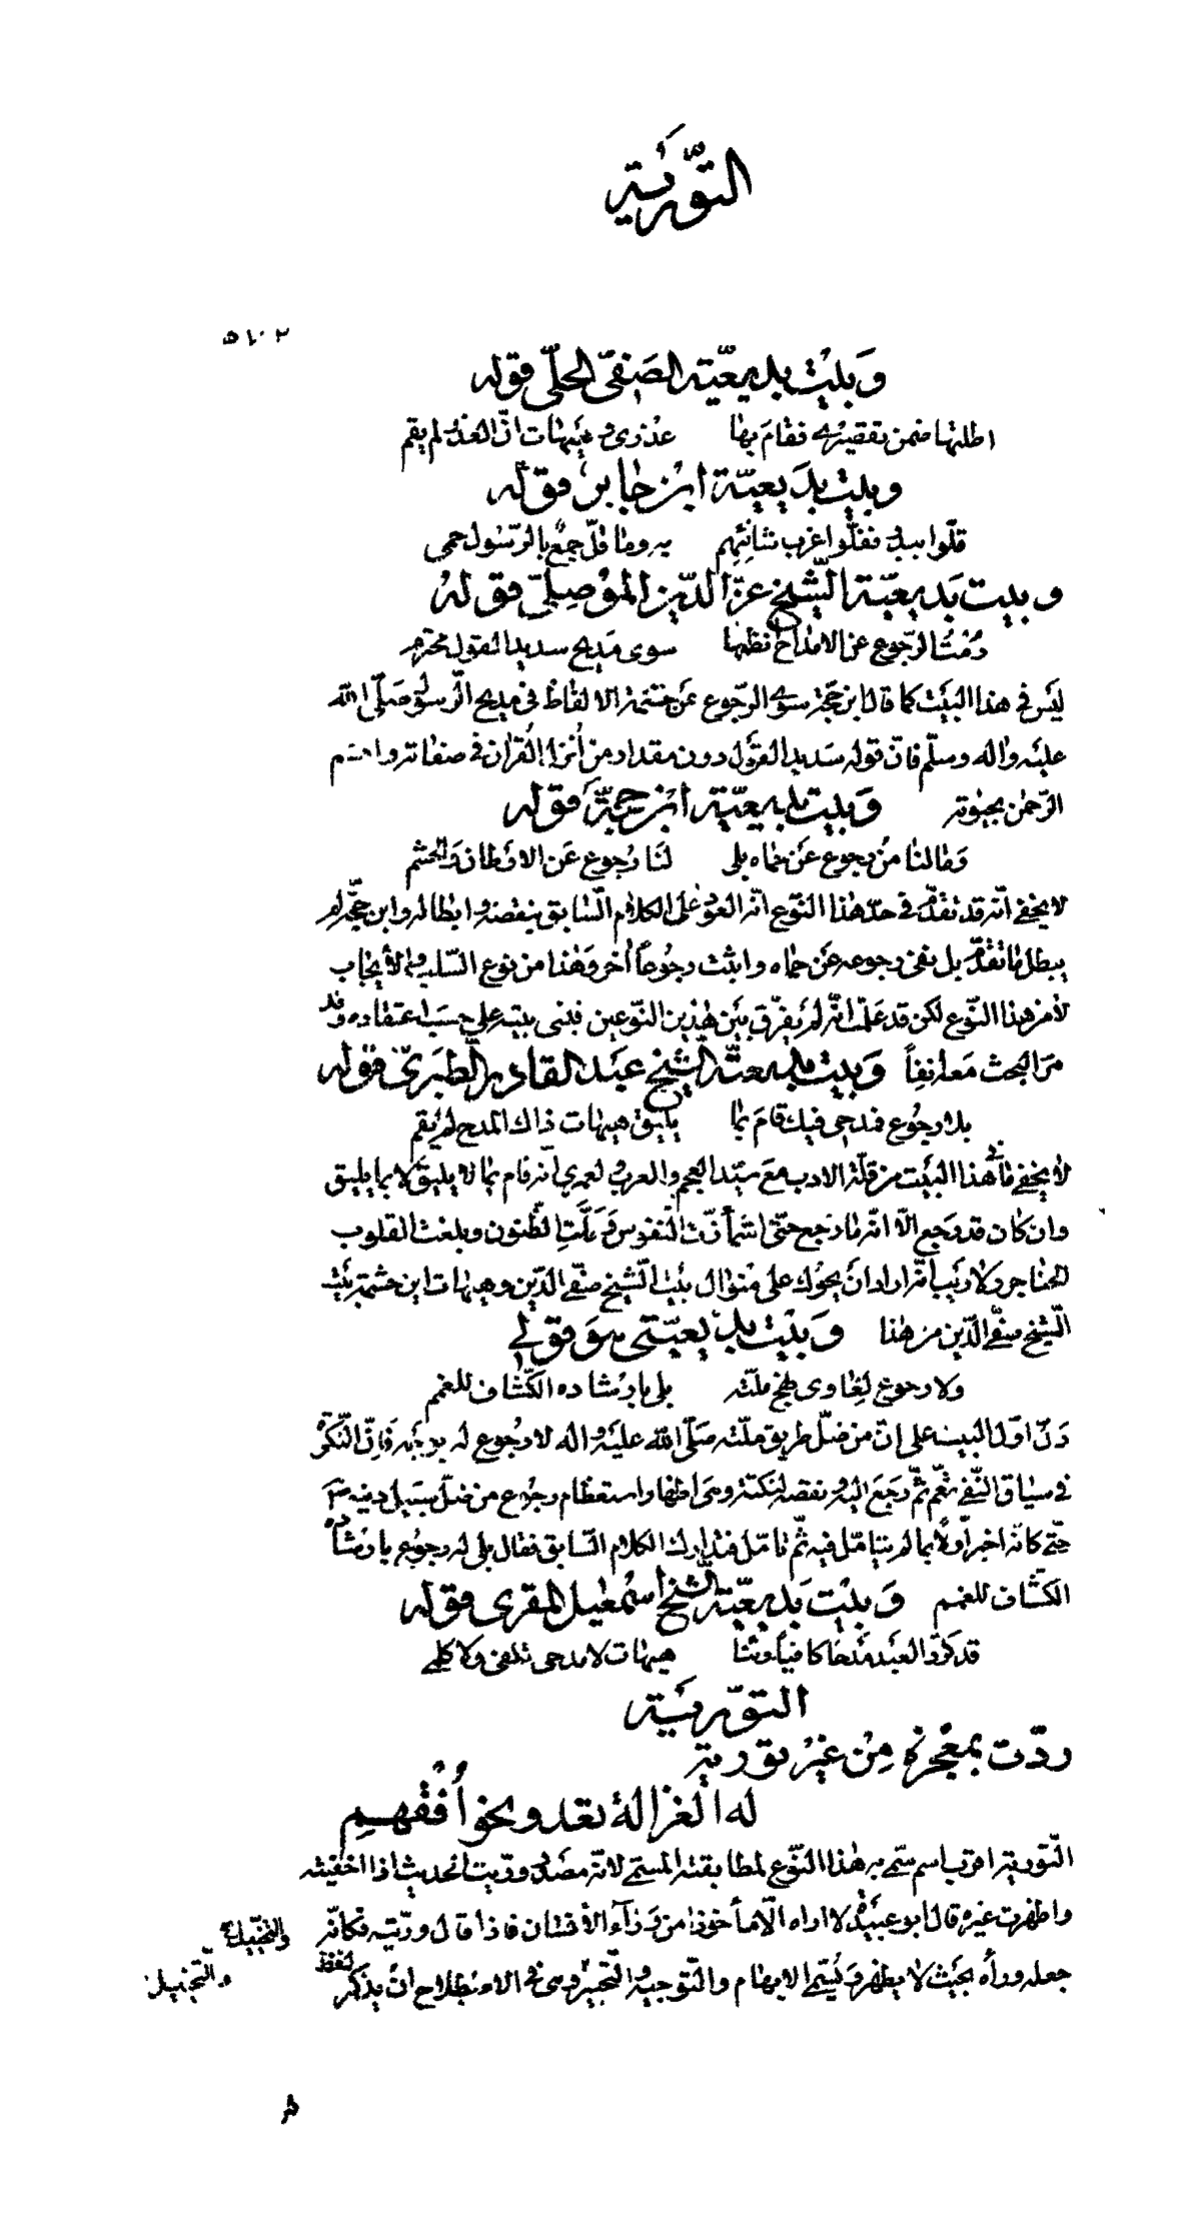 التورية
وبيت بديعية الصفي الحلي قوله
اطلتها ضمن تقصيري فقام بها عذري وهيهات ان العذر لم يقم
وبيت بديعية ابن جابر قوله
قلوا ببدر ففلوا غرب شانئهم به وما قل جمع بالرسول حمى
وبيت بديعية الشيخ عز الدين الموصلي قوله
رمت الرجوع عن الامداح نظمها سوى مديح سديد القول محترم
ليس في هذا البيت كما قال ابن حجة سوى الرجوع عن حشمة الالفاظ في مديح الرسول صلى الله
عليه واله وسلم فان قوله سديد القول دون مقدار من انزل القران في صفاته
الرحمن بجبوته وبيت بديعية ابن حجة قوله
وما لنا من رجوع عن حماه بلى لنا رجوع عن الاوطان والحشم
لا يخفى انه قد تقدم في حد هذا النوع انه العود على الكلام السابق بنقضه وابطاله وابن حجة لم
يبطل ما تقدم بل نفى رجوعه عن حماه واثبت رجوعا اخر وهذا من نوع السلب والايجاب
لا من هذا النوع لكن قد علمت انه لم يفرق بين هذين النوعين فبنى بيته على حسب اعتقاده وقد
مر البحث معه انفا وبيت بديعية الشيخ عبد القادر الطبري قوله
بلا رجوع فمدحي فيك قام بما يليق هيهات ذاك المدح لم يقم
لا يخفى ما في هذا البيت من قلة الادب مع سيد العجم والعرب ولعمري انه قام بما لا يليق لا بما يليق
وان كان قد رجع الا انه ما رجع حتى اشمأزت النفوس وزلت الظنون وبلغت القلوب
الحناجر ولا ريب انه اراد ان يحوك على منوال بيت الشيخ صفي الدين وهيهات اين حشمة بيت
الشيخ صفي الدين من هذا وبيت بديعيتي هو قولي
ولا رجوع لغاوي نهج ملته بلى بارشاده الكشاف للغمم
دل اول البيت على ان من ضل طريق ملته صلى الله عليه واله لا رجوع له بوجه فان النكرة
في سياق النفي تعم ثم رجع اليه ونقضه لنكتة وهي اظهار استعظام رجوع من ضل سبيل دينه
حتى كانه اخبر اولا بما لم يتامل فيه ثم تامل فتدارك الكلام السابق فقال بلى له رجوع بارشاده
الكشاف للغمم وبيت بديعية الشيخ اسمعيل المقري قوله
قد كرر العبد مدحا كافيا وثنا هيهات لا مدحي تلفى ولا كلمي
التورية
ردت بمعجزه من غير تورية
له الغزالة تعدو نحو أفقهم
التورية اقرب اسم سمي به هذا النوع لمطابقته المسمى لانه مصدر وريت الحديث اذا اخفيته
واظهرت غيره قال ابو عبيدة لا اراه الا مأخوذا من وراء الانسان فاذا قال وريته فكانه
جعله وراه بحيث لا يظهر ويسمى الايهام والتوجيه والتخيير وهي في الاصطلاح ان يذكر لفظ
والتخييل
والتخييل